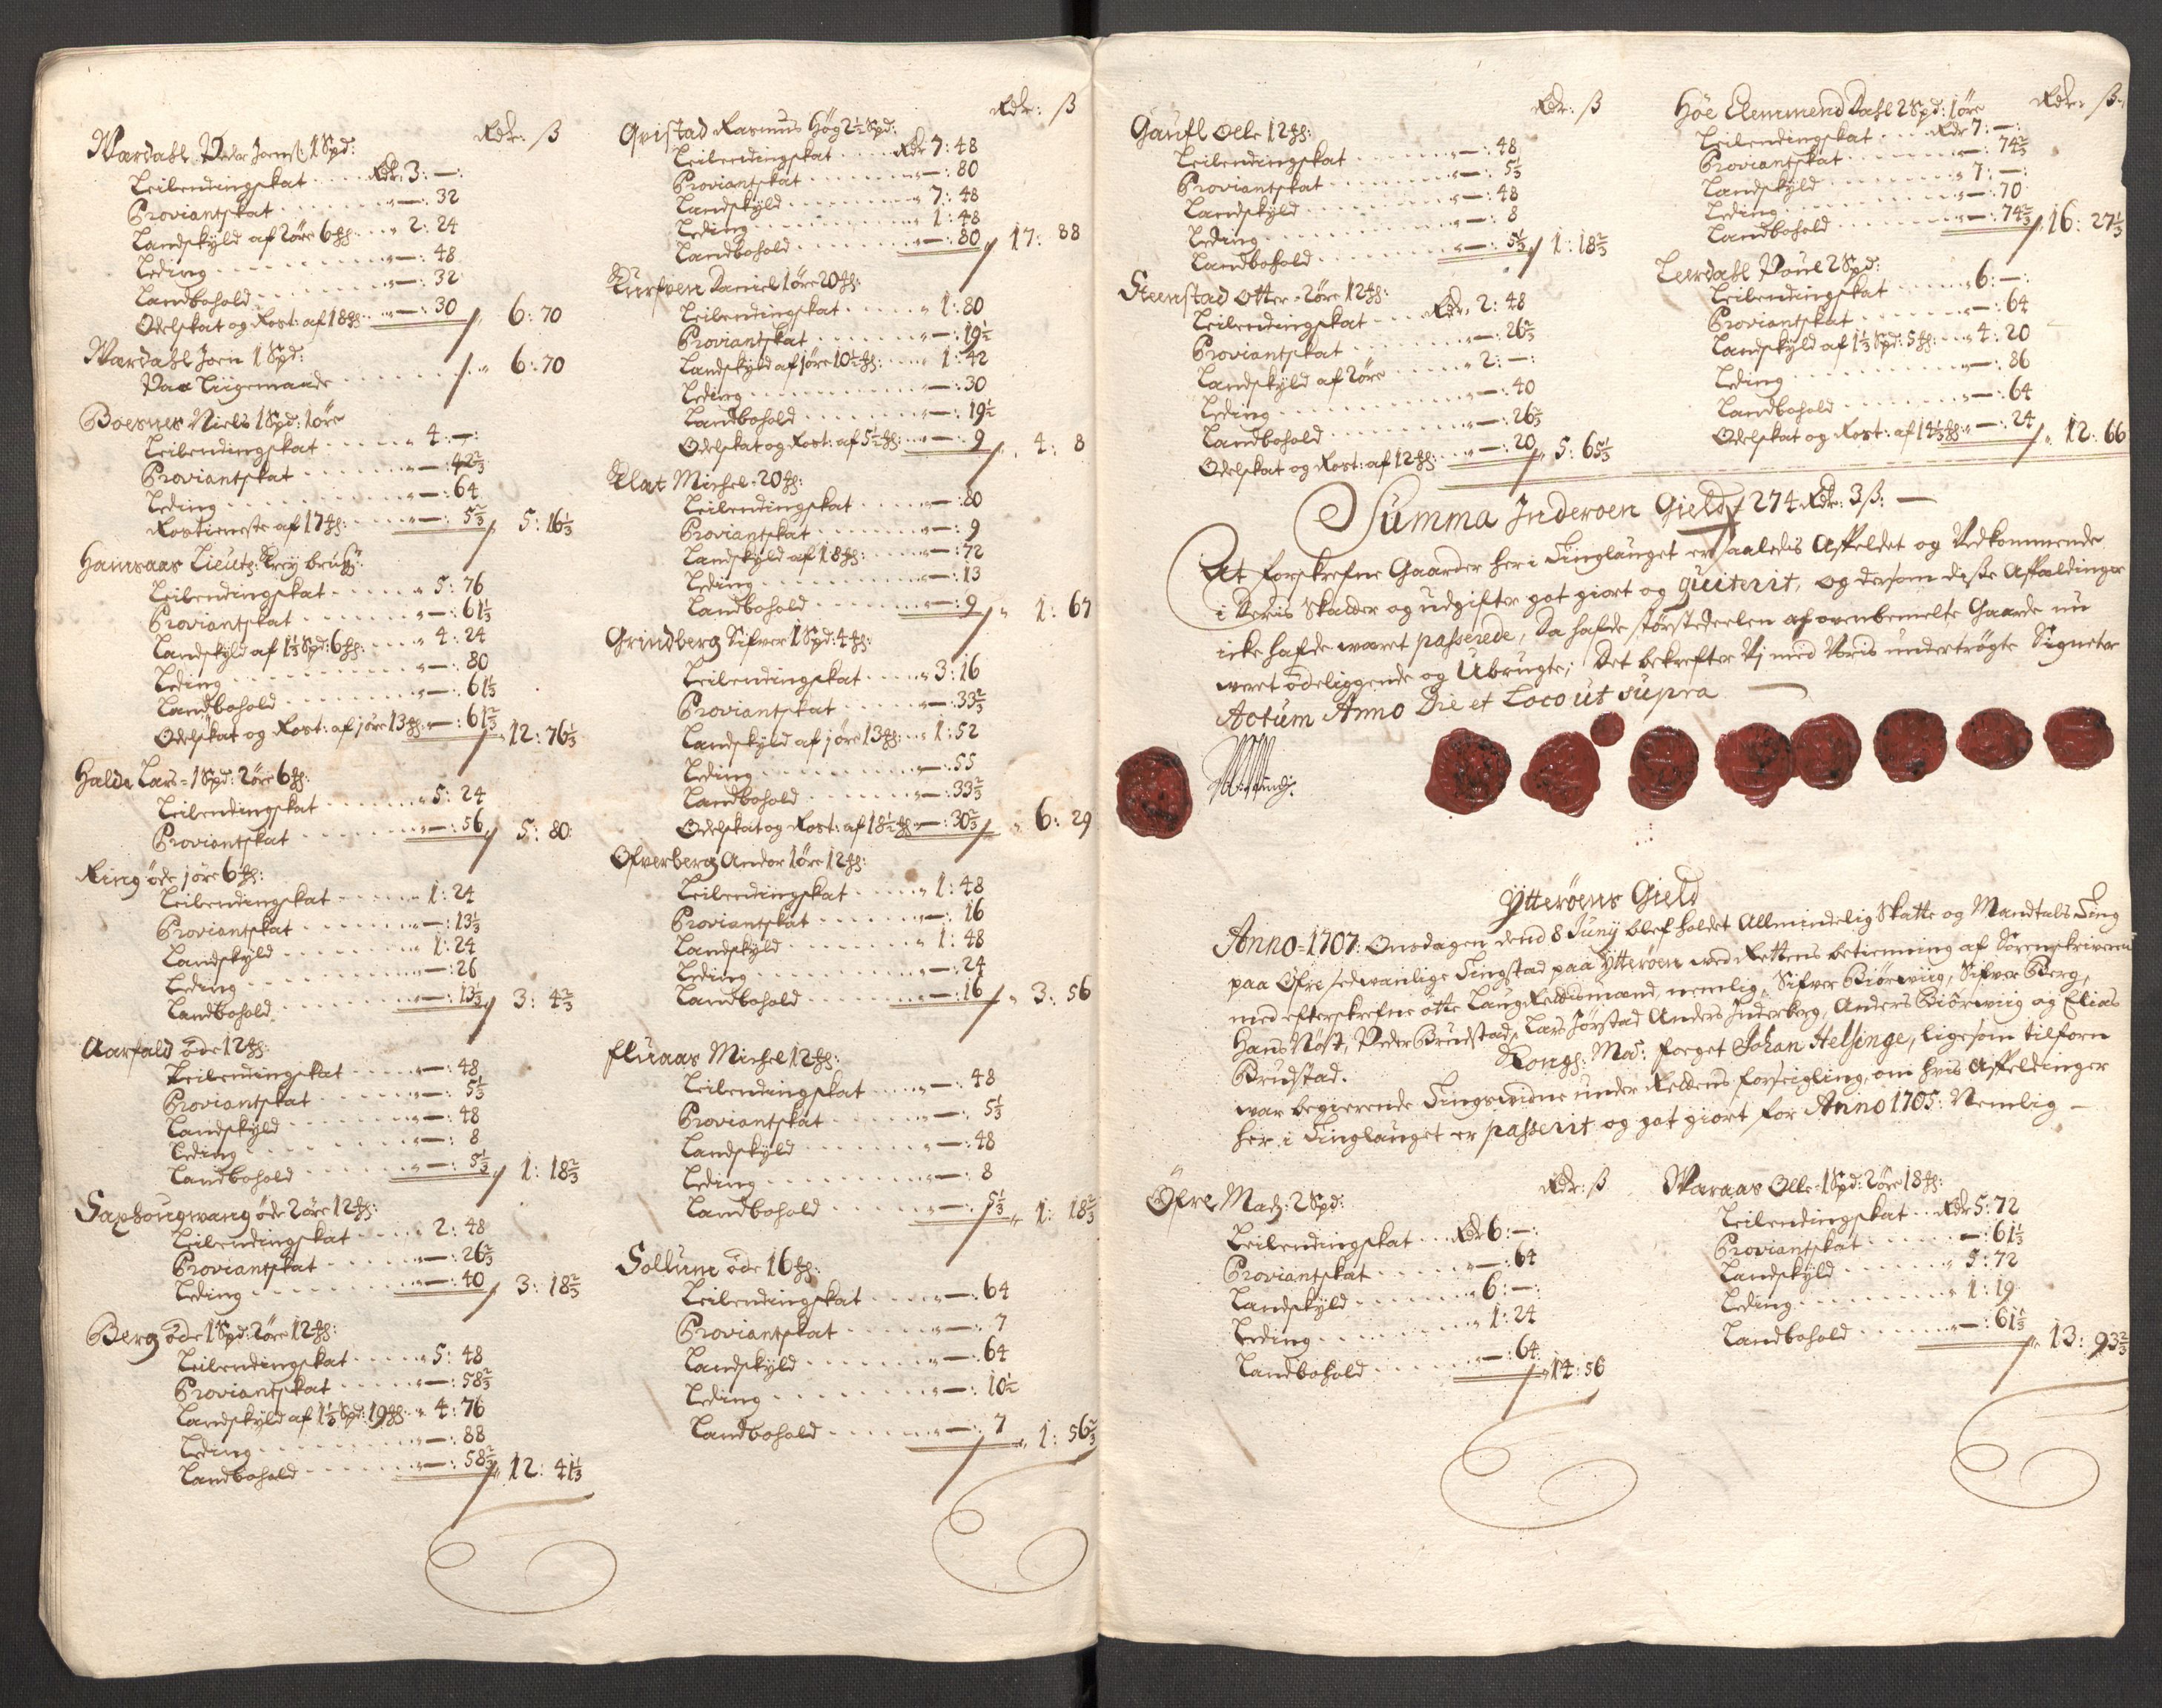 Rdr: ß
Wardahl Peder Joens: 1 Spd:
Leilendingskat . . . Rdr 3: —:
Proviantskat . . . " —: 32
Landskyld af 2 öre 6 ℔: . . " 2: 24
Leding . . . " —: 48
Landbohold . . . " —: 32
Odelskat og Rost: af 18 ℔: . . " —: 30 " 6: 70
Wardahl Joen 1 Spd:
Paa Liigemaade . . . " 6: 70
Boesnes Niels 1 Spd: 1 öre
Leilendingskat . . . " 4: —:
Proviantskat . . . " —: 42 2/3
Leding . . . " —: 64
Rostieneste af 17 ℔: . . " —: 5 2/3 " 5: 16 1/3
Hamsaas Lieut:
Leilendingskat . . . " 5: 76
Proviantskat . . . " —: 61 1/3
Landskyld af 1 1/3 Spd: 6 ℔: . . " 4: 24
Leding . . . " —: 80
Landbohold . . . " —: 61 1/3
Odelskat og Rost: af 1 öre 13 ℔: " —: 61 2/3 " 12: 76 1/3
Halde Lars - 1 Spd: 2 öre 6 ℔:
Leilendingskat . . . " 5: 24
Proviantskat . . . " —: 56 " 5: 80:
Ring öde 1 öre 6 ℔:
Leilendingskat . . . " 1: 24
Proviantskat . . . " —: 13 1/3
Landskyld . . . " 1: 24
Leding . . . " —: 26
Landbohold . . . " —: 13 1/3 " 3: 4 2/3
Aarfald öde 12 ℔:
Leilendingskat . . . " —: 48
Proviantskat . . . " —: 5 1/3
Landskyld . . . " —: 48
Leding . . . " —: 8
Landbohold . . . " —: 5 1/3 " 1: 18 2/3
Saxhougwang öde 2 öre 12 ℔:
Leilendingskat . . . " 2: 48
Proviantskat . . . " —: 26 2/3
Leding . . . " —: 40 " 3: 18 2/3
Berg öde 1 Spd: 2 öre 12 ℔:
Leilendingskat . . . " 5: 48
Proviantskat . . . " —: 58 2/3
Landskyld af 1 1/3 Spd: 19 ℔: " 4: 76
Leding . . . " —: 88
Landbohold . . . " —: 58 2/3 " 12: 41 1/3
Rdr: ß
Qvistad Rasmus Høg 2 1/2 Spd:
Leilendingskat . . . Rdr 7: 48
Proviantskat . . . " —: 80
Landskyld . . . " 7: 48
Leding . . . " 1: 48
Landbohold . . . " —: 80 " 17: 88
Daniel 1 öre 20 ℔:
Leilendingskat . . . " 1: 80
Proviantskat . . . " —: 19 1/2
Landskyld af 1 öre 10 1/2 ℔: . . " 1: 42
Leding . . . " —: 30
Landbohold . . . " —: 19 1/2
Odelskat og Rost: af 5 1/2 ℔: . . " —: 9 " 4: 8
Klat Michel - 20 ℔:
Leilendingskat . . . " —: 80
Proviantskat . . . " —: 9
Landskyld af 18 ℔: . . . " —: 72
Leding . . . " —: 13
Landbohold . . . " —: 9 " 1: 67
Grindberg Sifver 1 Spd: 4 ℔:
Leilendingskat . . . " 3: 16
Proviantskat . . . " —: 33 2/3
Landskyld af 1 öre 13 ℔: . . " 1: 52
Leding . . . " —: 55
Landbohold . . . " —: 33 2/3
Odelskat og Rost: af 18 1/2 ℔ " —: 30 2/3 " 6: 29
Ofverberg Andor 1 öre 12 ℔:
Leilendingskat . . . " 1: 48
Proviantskat . . . " —: 16
Landskyld . . . " 1: 48
Leding . . . " —: 24
Landbohold . . . " —: 16 " 3: 56
Fluaas Michel 12 ℔:
Leilendingskat . . . " —: 48
Proviantskat . . . " —: 5 1/3
Landskyld . . . " —: 48
Leding . . . " —: 8
Landbohold . . . " —: 5 1/3 " 1: 18 2/3
Sollum öde 16 ℔:
Leilendingskat . . . " —: 64
Proviantskat . . . " —: 7
Landskyld . . . " —: 64
Leding . . . " —: 10 1/2
Landbohold . . . " —: 7 " 1: 56 2/3
Rdr: ß
Gaufl Olle 12 ℔:
Leilendingskat . . . " —: 48
Proviantskat . . . " —: 5 1/3
Landskyld . . . " —: 48
Leding . . . " —: 8
Landbohold . . . " —: 5 1/3 " 1: 18 2/3
Steenstad Otter - 2 öre 12 ℔:
Leilendingskat . . . Rdr. 2: 48
Proviantskat . . . " —: 26 2/3
Landskyld af 2 öre . . . " 2: —:
Leding . . . " —: 40
Landbohold . . . " —: 26 2/3
Odelskat og Rost: af 12 ℔: . . " —: 20 " 5: 65 1/3
Rdr: ß
Høe Elemmend Dahl 2 Spd: 1 öre
Leilendingskat . . . Rdr 7: —:
Proviantskat . . . " —: 74 2/3
Landskyld . . . " 7: —:
Leding . . . " —: 70
Landbohold . . . " —: 74 2/3 " 16: 27 1/3
Leerdahl Poul 2 Spd:
Leilendingskat . . . " 6: —:
Proviantskat . . . " —: 64
Landskyld af 1 1/3 Spd: 5 ℔: . . " 4: 20
Leding . . . " —: 86
Landbohold . . . " —: 64
Odelskat og Rost: af 14 1/3 ℔: " —: 24 " 12: 66
Summa Inderoen Gield 274 Rdr: 3 ß: —
At forskrefne Gaarder her i Tinglauget er saaledis Affeldet og Vedkommende
i Deris Skatter og udgifter got giort og quiterit, og dersom disse Affældinger
icke hafde waret passerede, Da hafde størstedeelen af ovenbemelte Gaarde nu
weret ödeliggende og Ubrugte; Det bekrefter Vj med Voris undertrögte Signeter
Actum Anno Die et Loco ut supra
Ytterøens Gield
Anno - 1707: Onsdagen dend 8 Juny blef holdet Allmindelig Skatte og Mandtals Ting
paa Öfre sedwanlige Tingstad paa Ytterøen med Rettens betienning af Sorenskriveren
med efterskrefne otte Laug Rettismænd, nemlig, Sifver Biörwiig, Sifver Berg,
Hans Nøst, Peder Brudstad, Lars Jörstad Anders Inderberg, Anders Biörwiig og Elias
Brudstad. Kongl: May: foeget Johan Helsinge, ligesom tilforn
war begierende Tingswidne under Rettens forseigling, om hvis Affeldinger
her i Tinglauget er passerit og got giort for Anno 1705: Nemlig —
Rdr: ß
Öfre Madz: 2 Spd:
Leilendingskat . . . Rdr 6: —:
Proviantskat . . . " —: 64
Landskyld . . . " 6: —:
Leding . . . " 1: 24
Landbohold . . . " —: 64 " 14: 56
Waraas Olle - 1 Spd: 2 öre 18 ℔:
Leilendingskat . . Rdr 5: 72
Proviantskat . . . " —: 61 1/3
Landskyld . . . " 5: 72
Leding . . . " 1: 19
Landbohold . . . " —: 61 1/3 " 13: 93 2/3